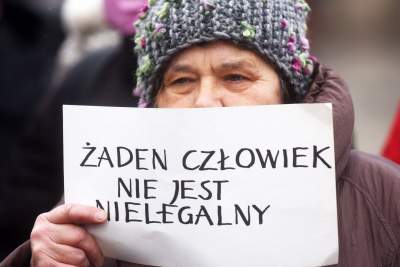 ŻADEN CZŁOWIEK
NIE JEST
NIELEGALNY